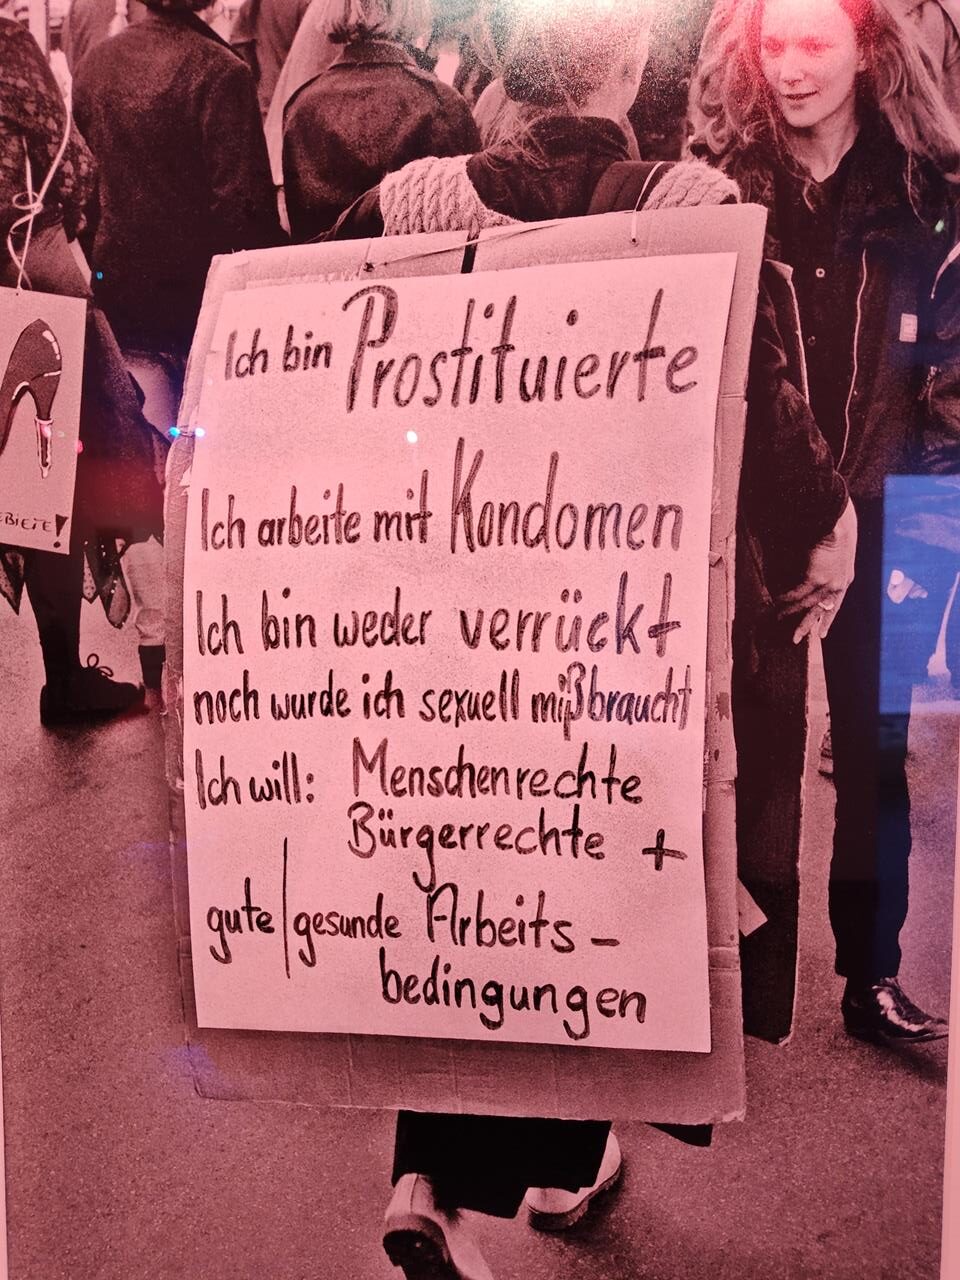 Ich bin Prostituierte
Ich arbeite mit Kondomen
Ich bin weder verrückt
noch wurde ich sexuell mißbraucht
Ich will: Menschenrechte
Bürgerrechte +
gute/gesunde Arbeits-
bedingungen